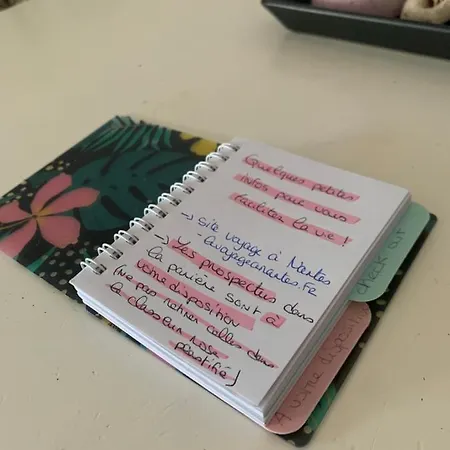 Quelques petites
infos pour vous
faciliter la vie !
→ Site voyage à Nantes
- levoyageanantes.fr
→ Les prospectus dans
la panière sont à
votre disposition
(ne pas retirer celles dans
la classeur rose
plastifié)
check out
A votre disposition